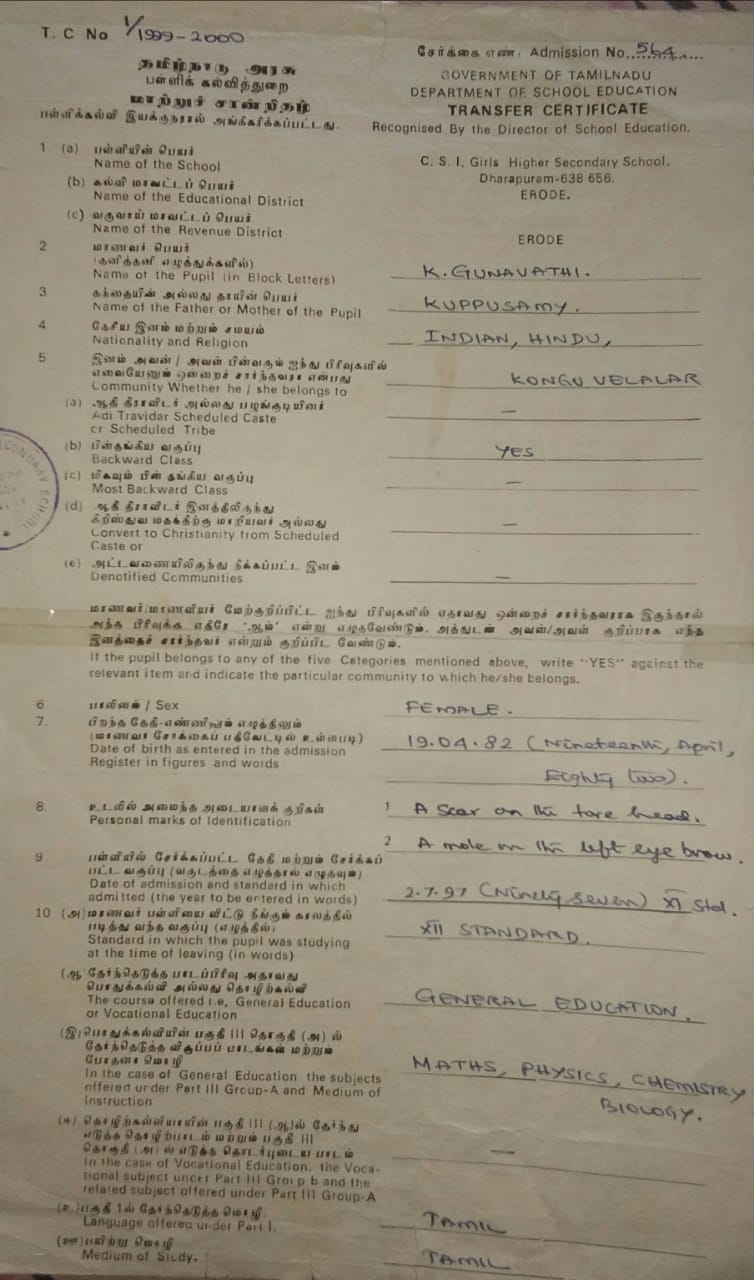 T. C No 1/1999-2000
சேர்க்கை எண்: Admission No. 564
தமிழ்நாடு அரசு
GOVERNMENT OF TAMILNADU
பள்ளிக் கல்வித்துறை
DEPARTMENT OF SCHOOL EDUCATION
மாற்றுச் சான்றிதழ்
TRANSFER CERTIFICATE
பள்ளிக்கல்வி இயக்குநரால் அங்கீகரிக்கப்பட்டது.
Recognised By the Director of School Education.
1 (a) பள்ளியின் பெயர்
Name of the School
C. S. I. Girls Higher Secondary School,
(b) கல்வி மாவட்டப் பெயர்
Dharapuram-638 656.
Name of the Educational District
ERODE.
(c) வருவாய் மாவட்டப் பெயர்
Name of the Revenue District
ERODE
2 மாணவர் பெயர்
(தனித்தனி எழுத்துக்களில்)
Name of the Pupil (in Block Letters)
K. GUNAVATHI.
3 தந்தையின் அல்லது தாயின் பெயர்
Name of the Father or Mother of the Pupil
KUPPUSAMY.
4 தேசிய இனம் மற்றும் சமயம்
Nationality and Religion
INDIAN, HINDU,
5 இனம் அவன் / அவள் பின்வரும் ஐந்து பிரிவுகளில்
எவையேனும் ஒன்றைச் சார்ந்தவரா என்பது
Community Whether he / she belongs to
KONGU VELALAR
(a) ஆதி திராவிடர் அல்லது பழங்குடியினர்
Adi Travidar Scheduled Caste
or Scheduled Tribe
—
(b) பின்தங்கிய வகுப்பு
Backward Class
YES
(c) மிகவும் பின் தங்கிய வகுப்பு
Most Backward Class
—
(d) ஆதி திராவிடர் இனத்திலிருந்து
கிறிஸ்துவ மதத்திற்கு மாறியவர் அல்லது
Convert to Christianity from Scheduled
Caste or
—
(e) அட்டவணையிலிருந்து நீக்கப்பட்ட இனம்
Denotified Communities
—
மாணவர்/மாணவியர் மேற்குறிப்பிட்ட ஐந்து பிரிவுகளில் ஏதாவது ஒன்றைச் சார்ந்தவராக இருந்தால்
அந்த பிரிவுக்கு எதிரே 'ஆம்' என்று எழுதவேண்டும். அத்துடன் அவன்/அவள் குறிப்பாக எந்த
இனத்தைச் சார்ந்தவர் என்றும் குறிப்பிட வேண்டும்.
If the pupil belongs to any of the five Categories mentioned above, write "YES" against the
relevant item and indicate the particular community to which he/she belongs.
6 பாலினம் / Sex
FEMALE.
7. பிறந்த தேதி-எண்ணிலும் எழுத்திலும்
(மாணவர் சேர்க்கைப் பதிவேட்டில் உள்ளபடி)
Date of birth as entered in the admission
Register in figures and words
19.04.82 (Nineteenth, April,
Eighty two).
8. உடலில் அமைந்த அடையாளக் குறிகள்
Personal marks of Identification
1 A scar on the fore head.
2 A mole on the left eye brow.
9 பள்ளியில் சேர்க்கப்பட்ட தேதி மற்றும் சேர்க்கப்
பட்ட வகுப்பு (வருடத்தை எழுத்தால் எழுதவும்)
Date of admission and standard in which
admitted (the year to be entered in words)
2.7.97 (Ninety seven) XI Std.
10 (அ) மாணவர் பள்ளியை விட்டு நீங்கும் காலத்தில்
படித்து வந்த வகுப்பு (எழுத்தில்)
Standard in which the pupil was studying
at the time of leaving (in words)
XII STANDARD.
(ஆ) தேர்ந்தெடுத்த பாடப்பிரிவு அதாவது
பொதுக்கல்வி அல்லது தொழிற்கல்வி
The course offered i.e, General Education
or Vocational Education
GENERAL EDUCATION.
(இ) பொதுக்கல்வியின் பகுதி III தொகுதி (அ) ல்
தேர்ந்தெடுத்த விருப்பப் பாடங்கள் மற்றும்
போதனா மொழி
In the case of General Education the subjects
offered under Part III Group-A and Medium of
Instruction
MATHS, PHYSICS, CHEMISTRY
BIOLOGY.
(ஈ) தொழிற்கல்வியாயின் பகுதி III (ஆ)ல் தேர்ந்து
எடுத்த தொழிற்பாடம் மற்றும் பகுதி III
தொகுதி (அ) ல் எடுத்த தொடர்புடைய பாடம்
In the case of Vocational Education, the Voca-
tional subject under Part III Group b and the
related subject offered under Part III Group-A
—
(உ) பகுதி 1ல் தேர்ந்தெடுத்த மொழி
Language offered under Part I.
TAMIL
(ஊ) பயிற்று மொழி
Medium of Study.
TAMIL